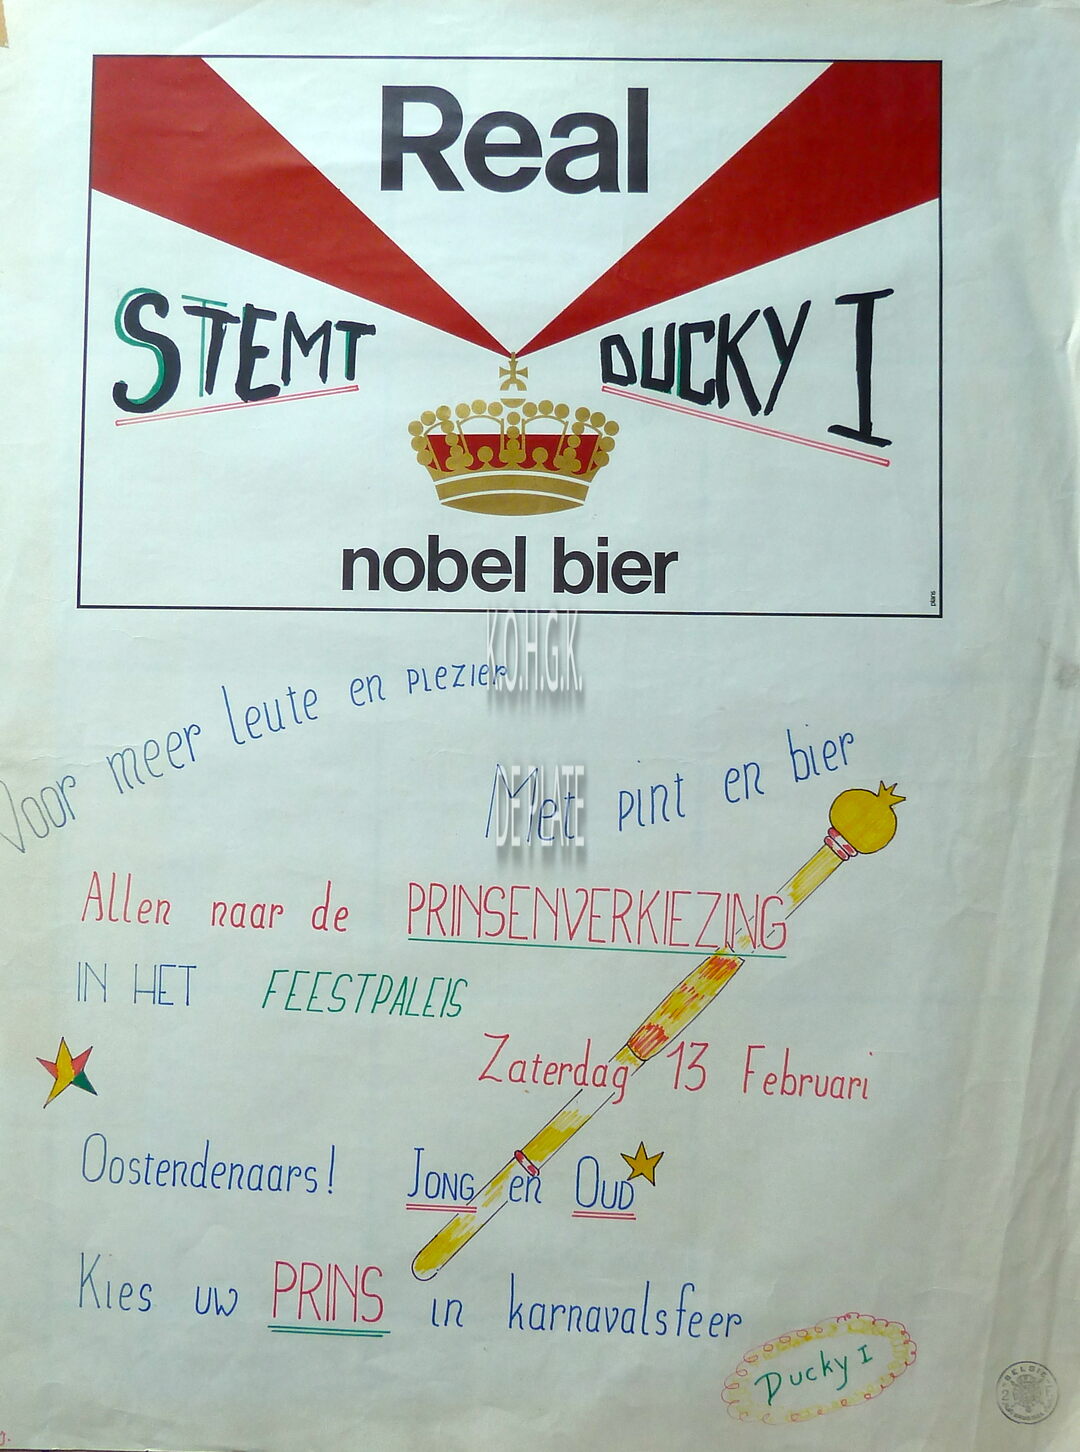 Real
STEMT DUCKY I
nobel bier
plans
K.O.H.G.K.
Voor meer leute en PLEZIER
DE PLATE
Met pint en bier
Allen naar de PRINSENVERKIEZING
IN HET FEESTPALEIS
Zaterdag 13 Februari
Oostendenaars! JONG en OUD
Kies uw PRINS in karnavalsfeer
Ducky I